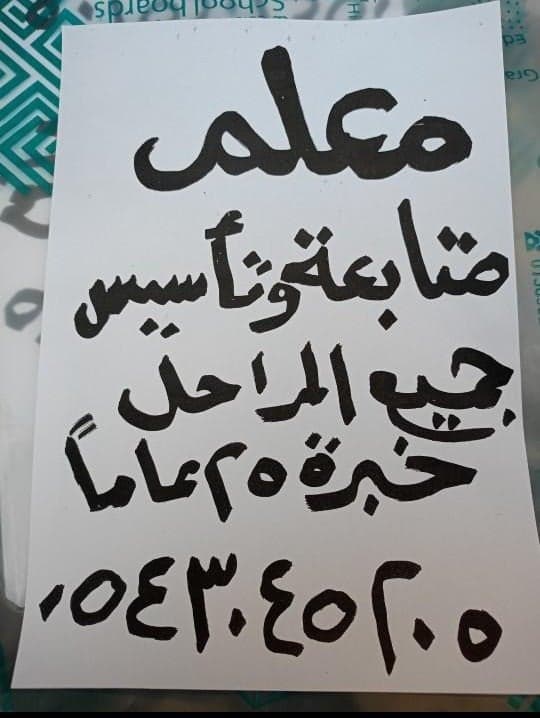 School boards
معلم
متابعة وتأسيس
جميع المراحل
خبرة ٢٥ عاماً
٠٥٤٣٠٤٥٢٠٥